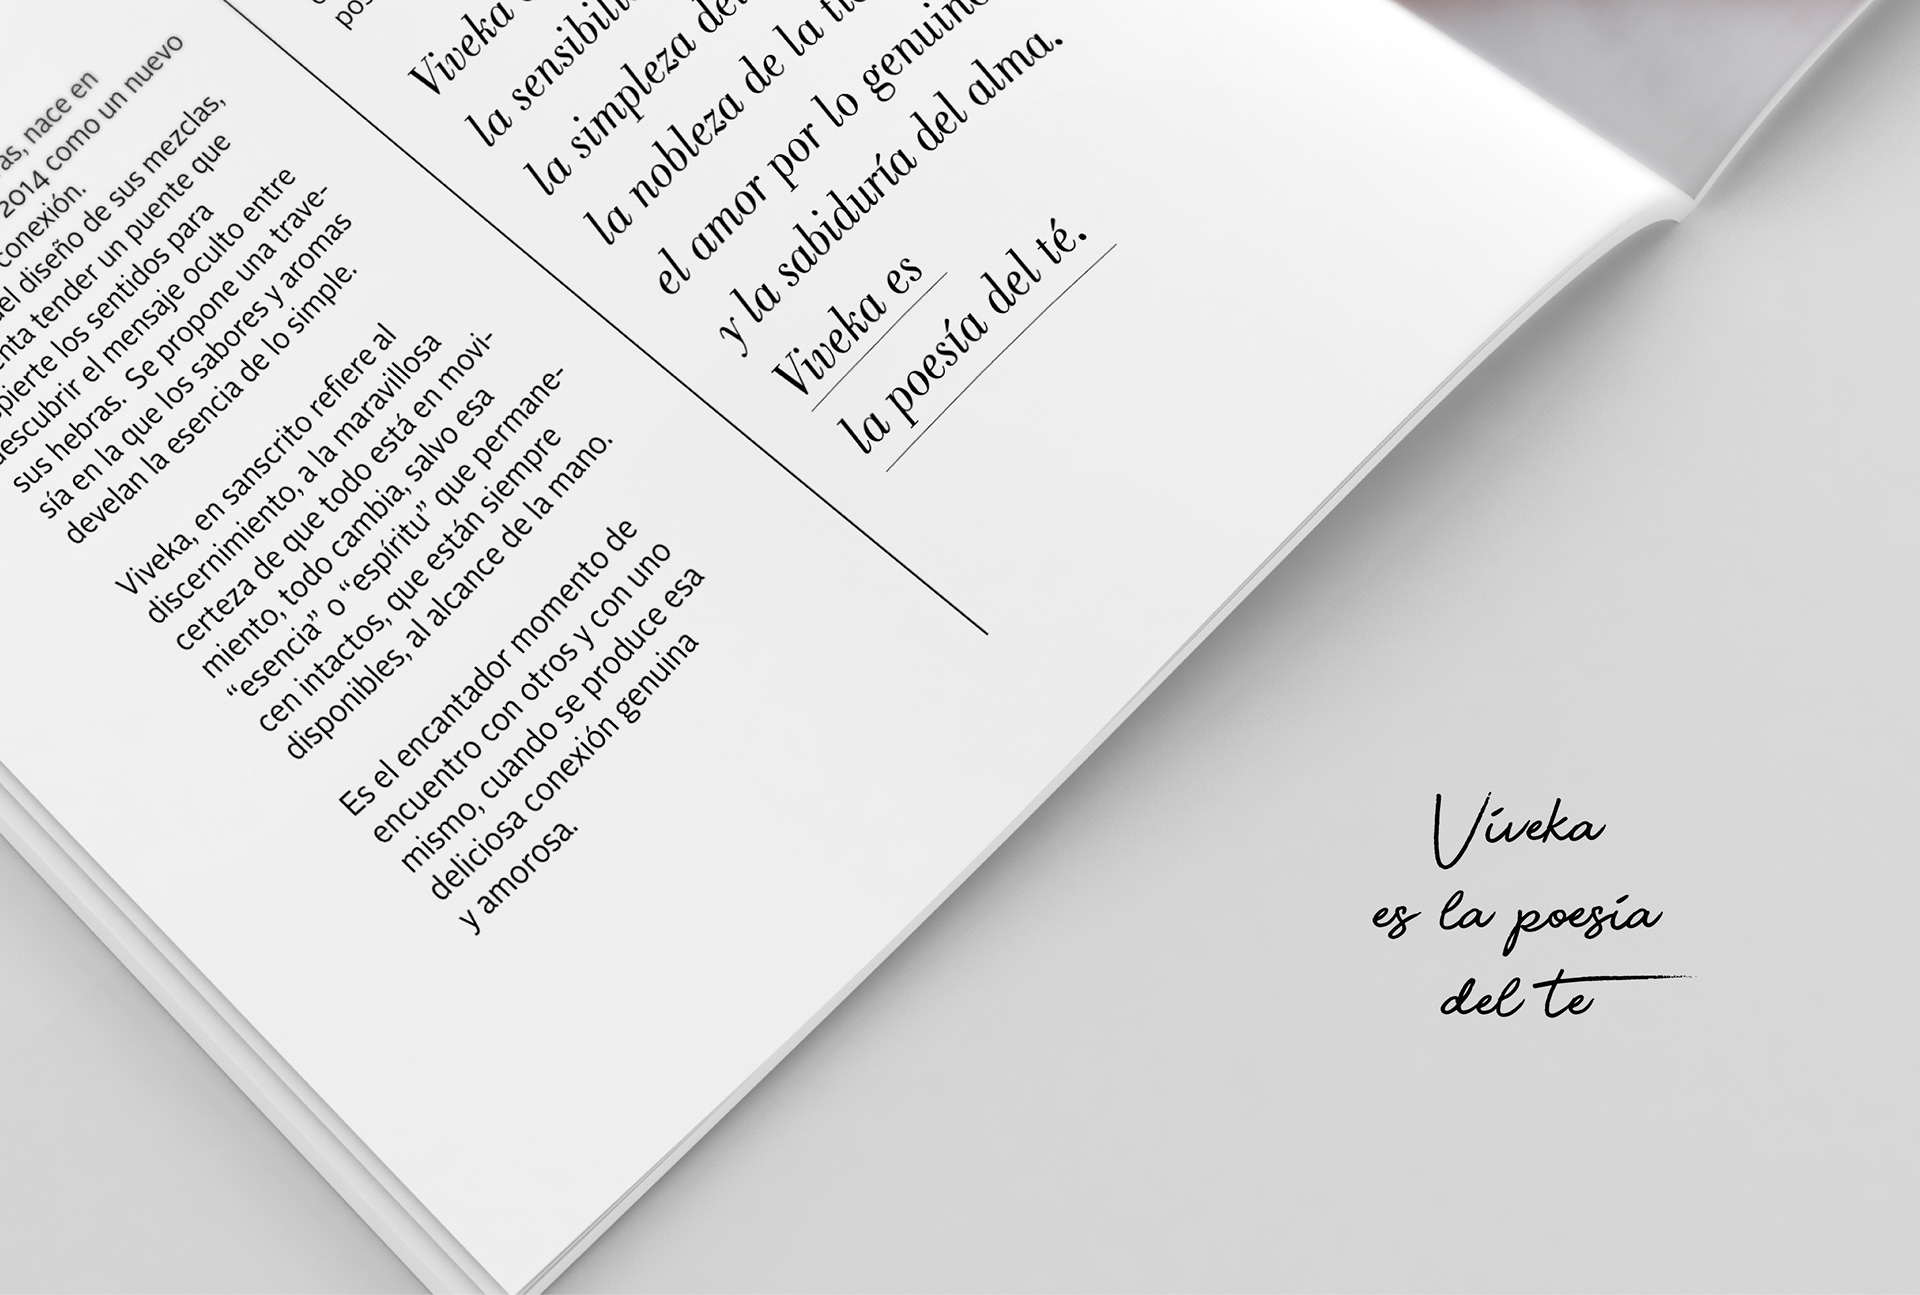 nace en
2014 como un nuevo
conexión.
el diseño de sus mezclas,
tender un puente que
los sentidos para
descubrir el mensaje oculto entre
sus hebras. Se propone una trave-
sía en la que los sabores y aromas
develan la esencia de lo simple.
Viveka, en sanscrito refiere al
discernimiento, a la maravillosa
certeza de que todo está en movi-
miento, todo cambia, salvo esa
“esencia” o “espíritu” que permane-
cen intactos, que están siempre
disponibles, al alcance de la mano.
Es el encantador momento de
encuentro con otros y con uno
mismo, cuando se produce esa
deliciosa conexión genuina
y amorosa.
Viveka
la
la simpleza
la nobleza de la
el amor por lo
y la sabiduría del alma.
Viveka es
la poesía del té.
Viveka
es la poesía
del te